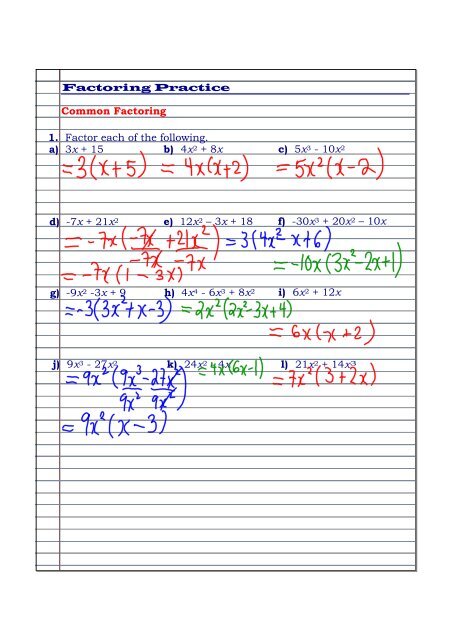 Factoring Practice
Common Factoring
1. Factor each of the following.
a) 3x + 15 b) 4x² + 8x c) 5x³ - 10x²
= 3(x+5) = 4x(x+2) = 5x²(x-2)
d) -7x + 21x² e) 12x² – 3x + 18 f) -30x³ + 20x² – 10x
= -7x(-7x/-7x + 21x²/-7x) = 3(4x² - x+6)
= -10x(3x²-2x+1)
= -7x(1 - 3x)
g) -9x² -3x + 9 h) 4x⁴ - 6x³ + 8x² i) 6x² + 12x
= -3(3x²+x-3) = 2x²(2x²-3x+4)
= 6x(x+2)
j) 9x³ - 27x² k) 24x² - 4x = 4x(6x-1) l) 21x² + 14x³
= 9x²(9x³/9x² - 27x²/9x²) = 7x²(3+2x)
= 9x²(x-3)